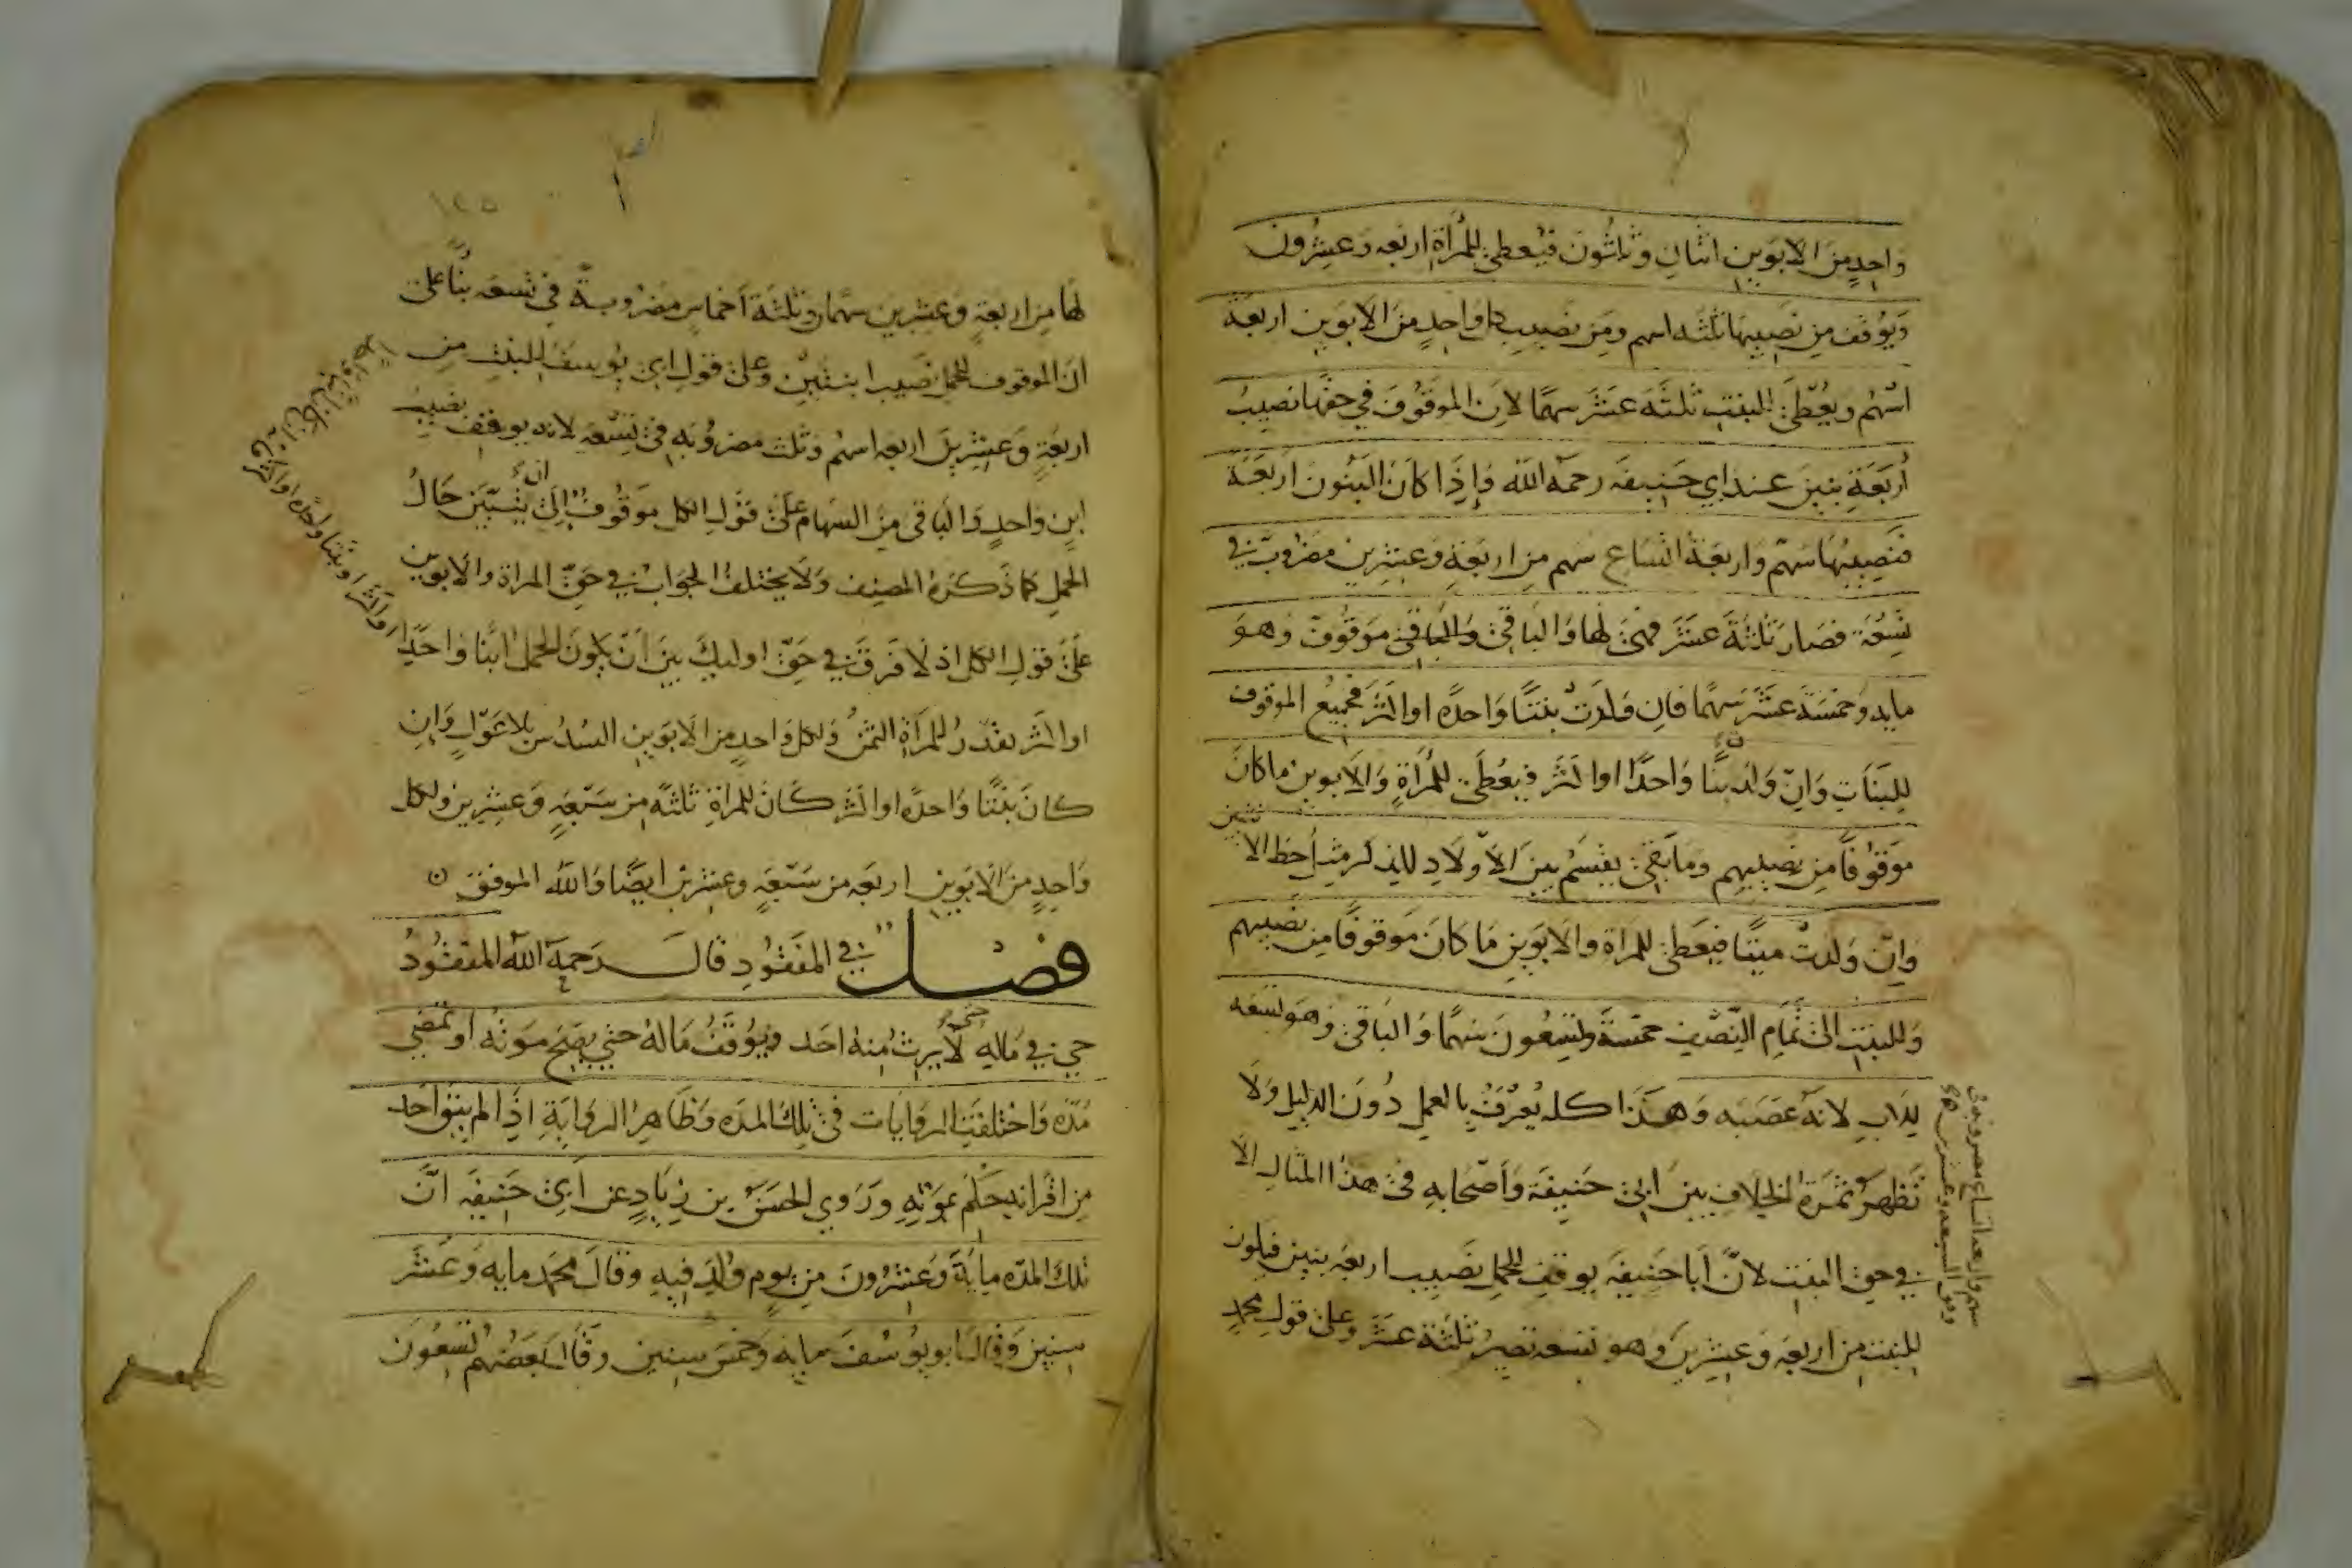 واحدٍ من الابوين اثنان وثلثون فيُعطى للمرأة اربعه وعشرون
ويُوقف من نصيبها ثلثه اسهم ومن نصيب كل واحدٍ من الابوين اربعة
اسهم ويُعطى للبنت ثلثه عشر سهمًا لان الموقوف في حقها نصيبُ
أربعة بنين عند ابي حنيفه رحمه الله وإذا كان البنون اربعة
فنصيبُها سهم واربعة اتساع سهم من اربعةٍ وعشرين مضروب في
تسعة فصار ثلثة عشر فهي لها والباقي والباقي موقوف وهو
مايه وخمسة عشر سهمًا فان ولدت بنتًا واحدة او اكثر فجميع الموقوف
للبنات وان ولدت ابنًا واحدًا او اكثر فيُعطى للمرأة والابوين ما كان
موقوفًا من نصيبهم وما بقى يقسم بين الاولاد للذكر مثل حظ الانثيين
وان ولدت ميتًا فيعطى للمراة والابوين ما كان موقوفًا من نصيبهم
وللبنت الى تمام النصف خمسة وتسعون سهمًا والباقى وهو تسعه
للاب لانه عصبه وهذا كله يُعرفُ بالعمل دون الدليل ولا
تظهر ثمرة الخلاف بين ابى حنيفة واصحابه فى هذا المثال الا
في حق البنت لانّ أبا حنيفه يوقف للحمل نصيب اربعه بنين فيكون
للبنت من اربعه وعشرين وهو تسعه تصير ثلثة عشر وعلى قول محمدٍ
سهم واربعه اتساع مضروبه فى
لها من اربعةٍ وعشرين سهمًا وثلثة أخماسٍ مضروبةً في تسعه بنًا على
ان الموقوف للحمل نصيب ابنتين وعلى قول ابى يوسف للبنت من
اربعةٍ وعشرين اربعه اسهم وثلث مضروبه فى تسعه لانه يوقف نصيب
ابن واحدٍ والباقى من السهام على قول الكل موقوف إلى ان يتبين حال
الحمل كما ذكره المصنف ولا يختلف الجواب في حق المراة والابوين
على قول الكل اذ لا فرق في حق اوليك بين ان يكون الحمل ابنًا واحدًا
او اكثر يقدر للمرأة الثمن ولكل واحدٍ من الابوين السدس بلا عول وان
كان بنتًا واحدة او اكثر كان للمراة ثلثه من سبعةٍ وعشرين ولكل
واحدٍ من الابوين اربعه من سبعةٍ وعشرين ايضًا والله الموفق
فصل في المفقود قال رحمه الله المفقود
حي في ماله حتى لا يرث منه احد ويوقف ماله حتى يصح موته او تمضي
مدة واختلفت الروايات فى تلك المده وظاهر الرواية اذا لم يبق احد
من اقرانه حكم بموته وروي الحسن بن زياد عن ابى حنيفه انّ
تلك المده ماية وعشرون من يوم ولد فيه وقال محمد مايه وعشر
سنين وقال ابو يوسف مايه وخمس سنين وقال بعضهم تسعون